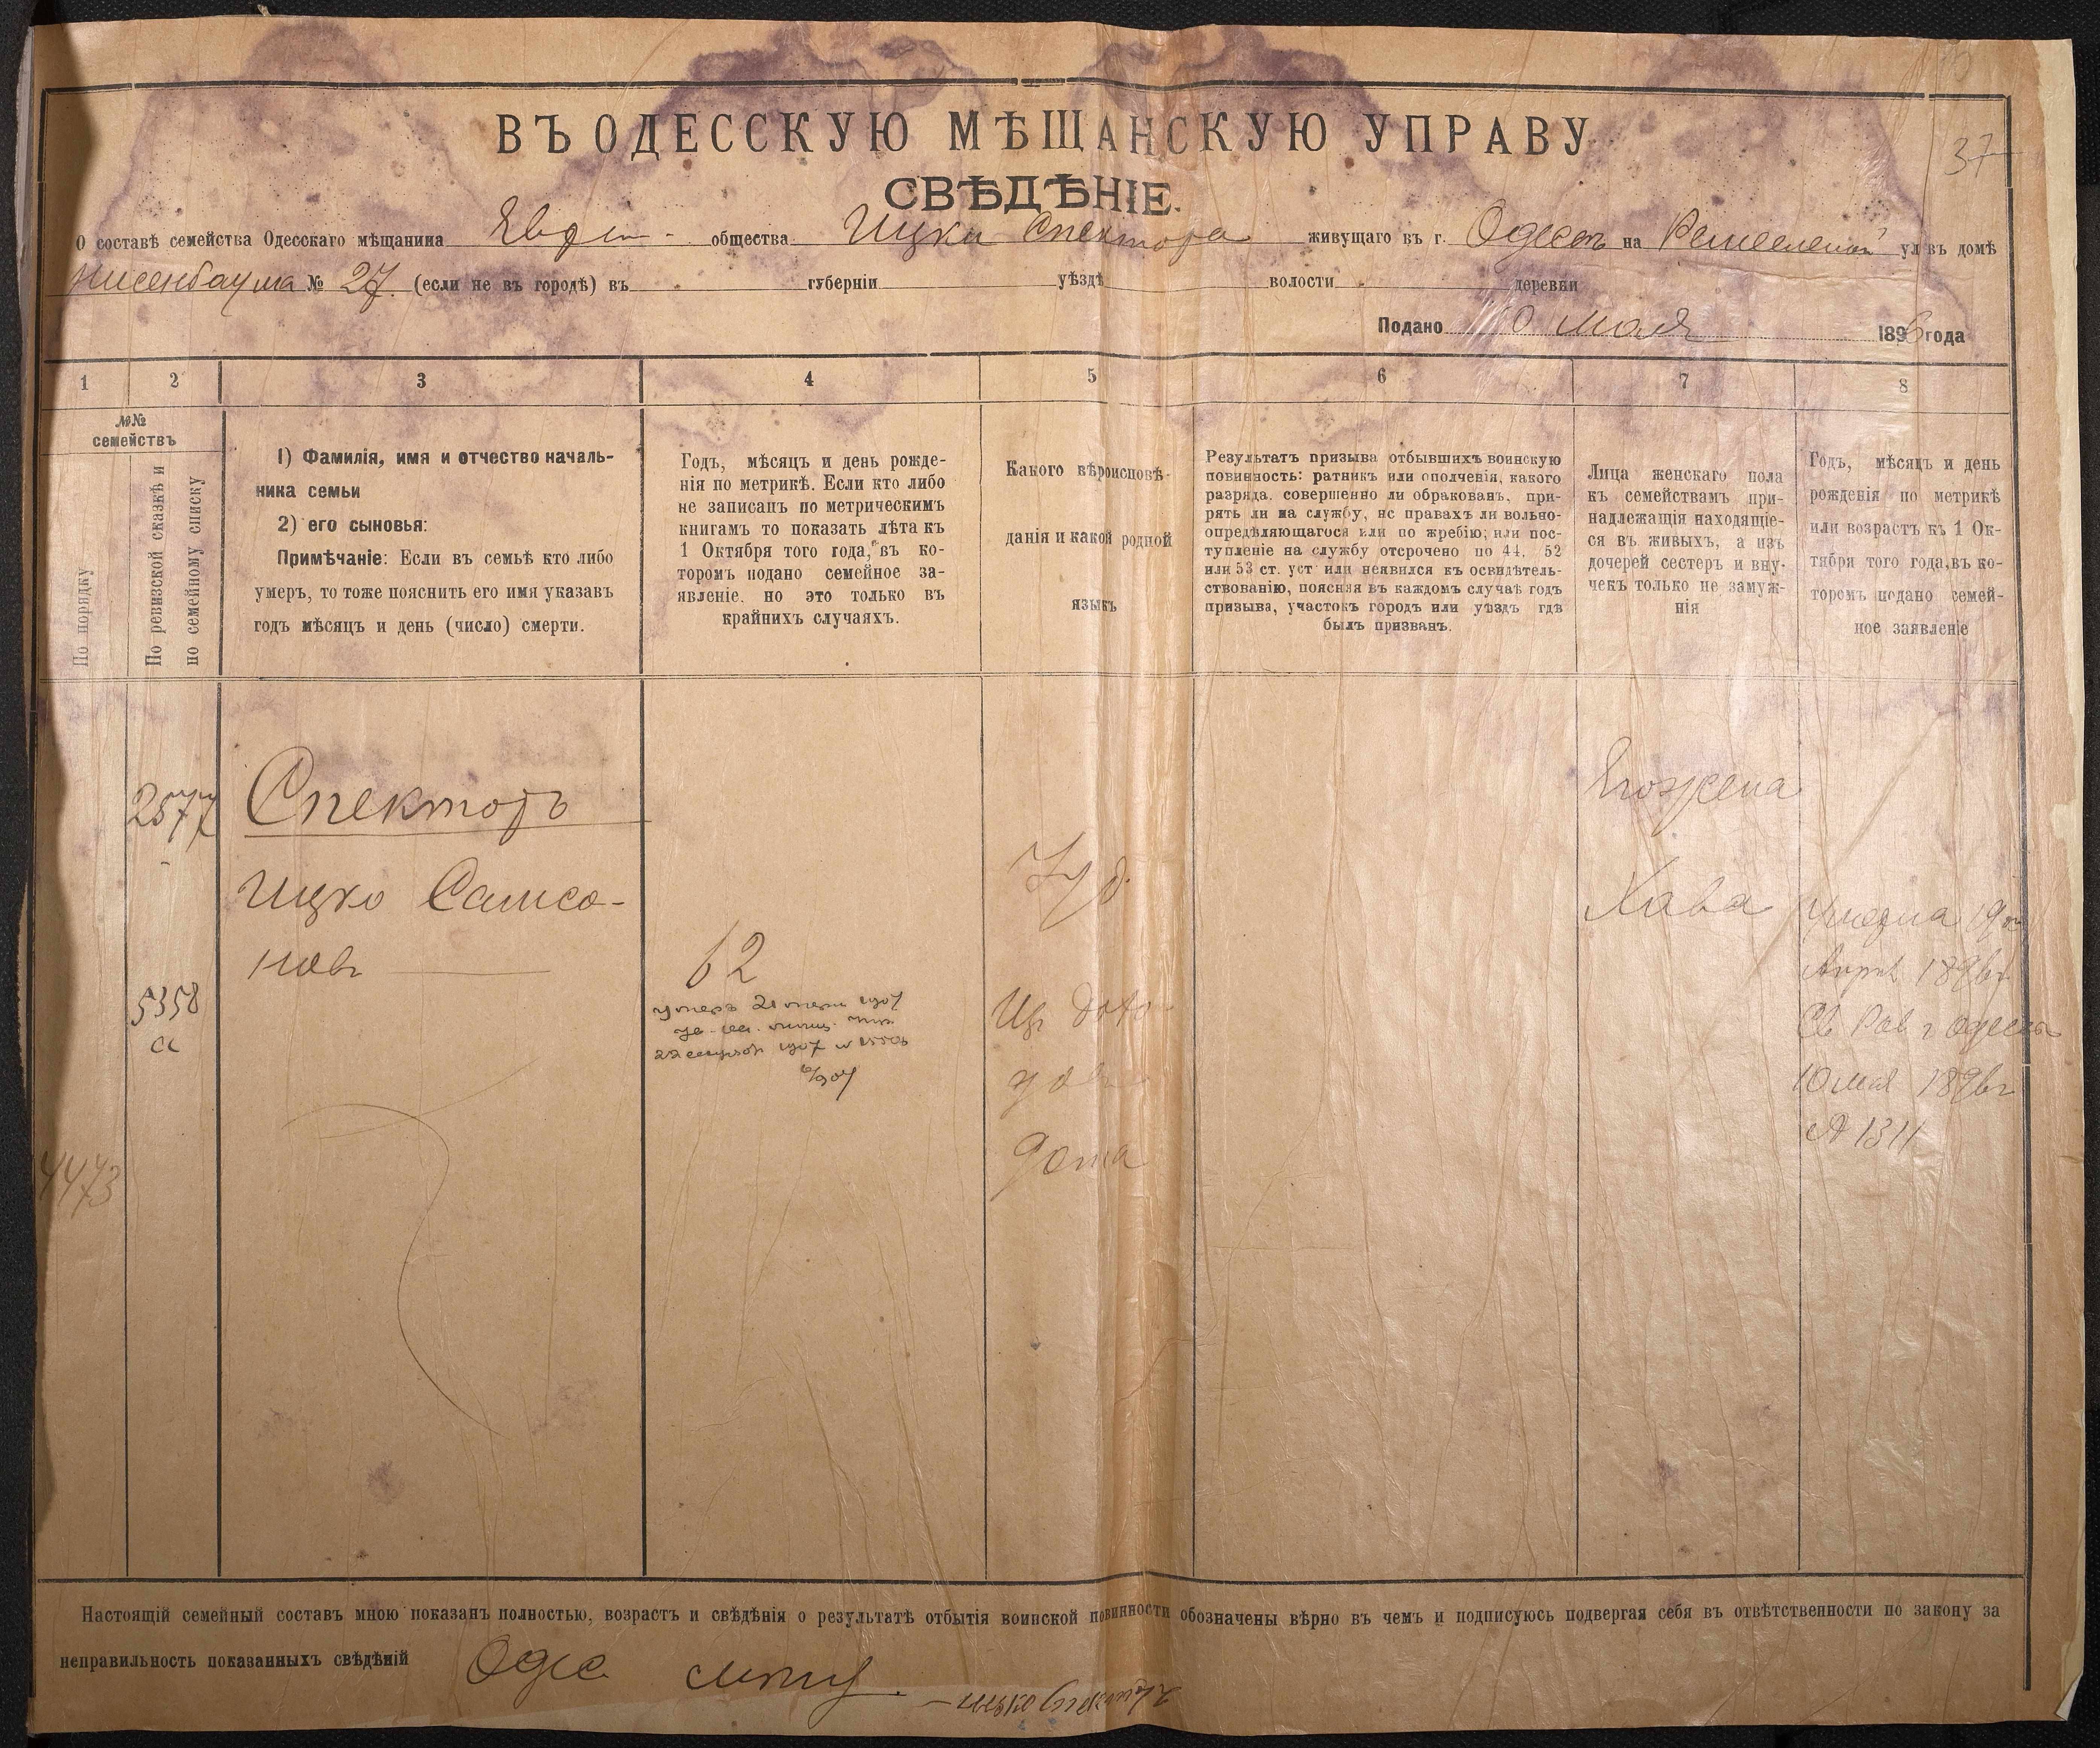 37
ВЪ ОДЕССКУЮ МѢЩАНСКУЮ УПРАВУ
СВѢДѢНІЕ.
О составѣ семейства Одесскаго мѣщанина общества Ицки Спектора живущаго въ г. Одессѣ на Ремесленой ул въ домѣ
Нисенбаума № 27. (если не въ городѣ) въ губерніи уѣздѣ волости деревни
Подано 10 мая 1896 года
1 2 3 4 5 6 7 8
№№
семействъ
По порядку
По ревизской сказкѣ и
по семейному списку
1) Фамилія, имя и отчество началь-
ника семьи
2) его сыновья:
Примѣчаніе: Если въ семьѣ кто либо
умеръ, то тоже пояснить его имя указавъ
годъ мѣсяцъ и день (число) смерти.
Годъ, мѣсяцъ и день рожде-
нія по метрикѣ. Если кто либо
не записанъ по метрическимъ
книгамъ то показать лѣта къ
1 Октября того года, въ ко-
торомъ подано семейное за-
явленіе, но это только въ
крайнихъ случаяхъ.
Какого вѣроисповѣ-
данія и какой родной
языкъ
Результатъ призыва отбывшихъ воинскую
повинность: ратникъ или ополченія, какого
разряда, совершенно ли обракованъ, при-
рятъ ли на службу, нс правахъ ли вольно-
опредѣляющагося или по жребію; или пос-
тупленіе на службу отсрочено по 44, 52
или 53 ст. уст или неявился къ освидѣтель-
ствованію, поясняя въ каждомъ случаѣ годъ
призыва, участокъ городъ или уѣздъ гдѣ
былъ призванъ.
Лица женскаго пола
къ семействамъ при-
надлежащія находящіе-
ся въ живыхъ, а изъ
дочерей сестеръ и вну-
чекъ только не замуж-
нія
Годъ, мѣсяцъ и день
рожденія по метрикѣ
или возрастъ къ 1 Ок-
тября того года, въ ко-
торомъ подано семей-
ное заявленіе
2577
Спекторъ
Ицко Самсо-
новъ
62
5358
4473
Іуд.
Его жена
Хава
Умерла 19го
Апрѣ 1896г.
Св Рав г Одессы
10 мая 1896г
№ 1311
Настоящій семейный составъ мною показанъ полностью, возрастъ и свѣдѣнія о результатѣ отбытія воинской повинности обозначены вѣрно въ чемъ и подписуюсь подвергая себя въ отвѣтственности по закону за
неправильность показанныхъ свѣдѣній Одес